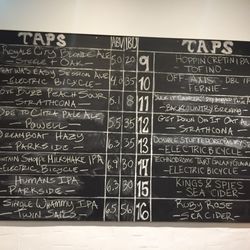 TAPS ABV IBU TAPS
ROYALE CITRA BLONDE ALE 5.0 20 9 HOPPIN CRETIN IPA
STEEL + OAK TOFINO
THAT WAS EASY SESSION ALE 4.0 35 10 OFF AXIS DBL IPA
ELECTRIC BICYCLE FERNIE
BUZZ PEACH SOUR 5.1 8 11
STRATHCONA BACKCOUNTRY BREWING
ODE TO CITRA PALE ALE 5.5 35 12 GET DOWN ON IT OAT ALE
POWELL STRATHCONA
DREAMBOAT HAZY 13 DOUBLE
PARKSIDE ELECTRIC BICYCLE
MILKSHAKE IPA 6.9 30 14
ELECTRIC BICYCLE ELECTRIC BICYCLE
HUMANS IPA 6.3 30 15 KINGS & SPIES
PARKSIDE SEA CIDER
SINGLE WHAMMY IPA 6.5 56 16 RUBY ROSE
TWIN SAILS SEA CIDER